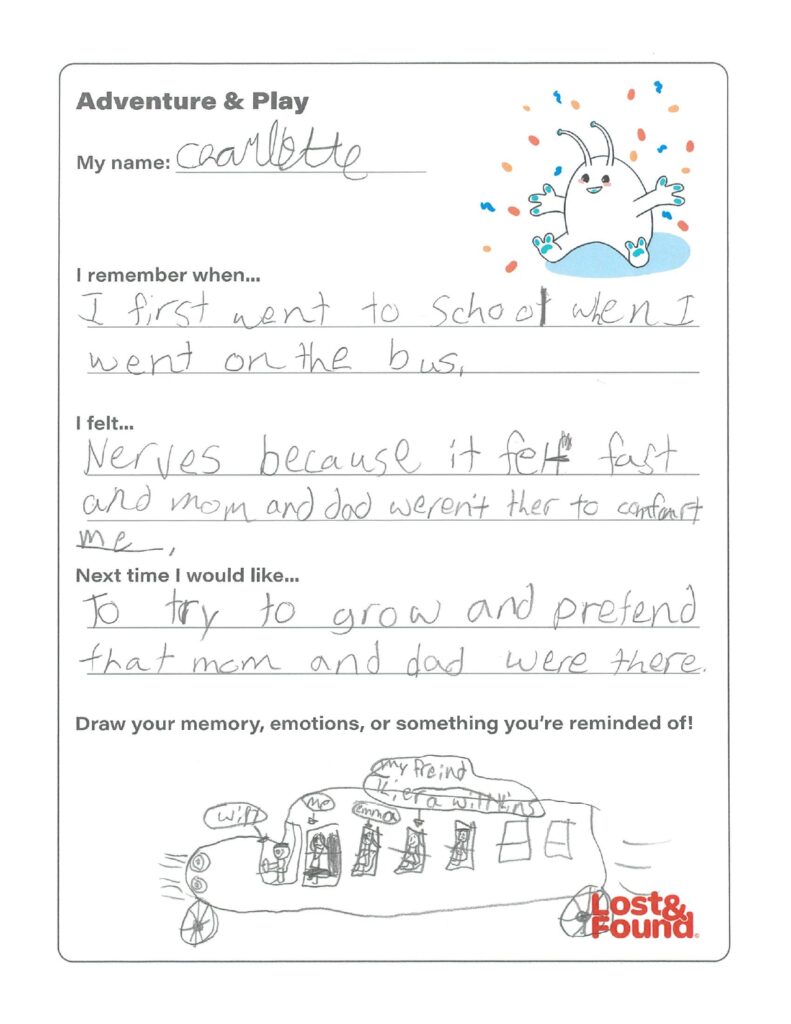 Adventure & Play
My name: Caarlotte
I remember when...
I first went to school when I
went on the bus.
I felt...
Nerves because it felt fast
and mom and dad weren't ther to comfourt
me.
Next time I would like...
To try to grow and pretend
that mom and dad were there.
Draw your memory, emotions, or something you're reminded of!
my freind
Kiera
me
emma
Lost&
Found